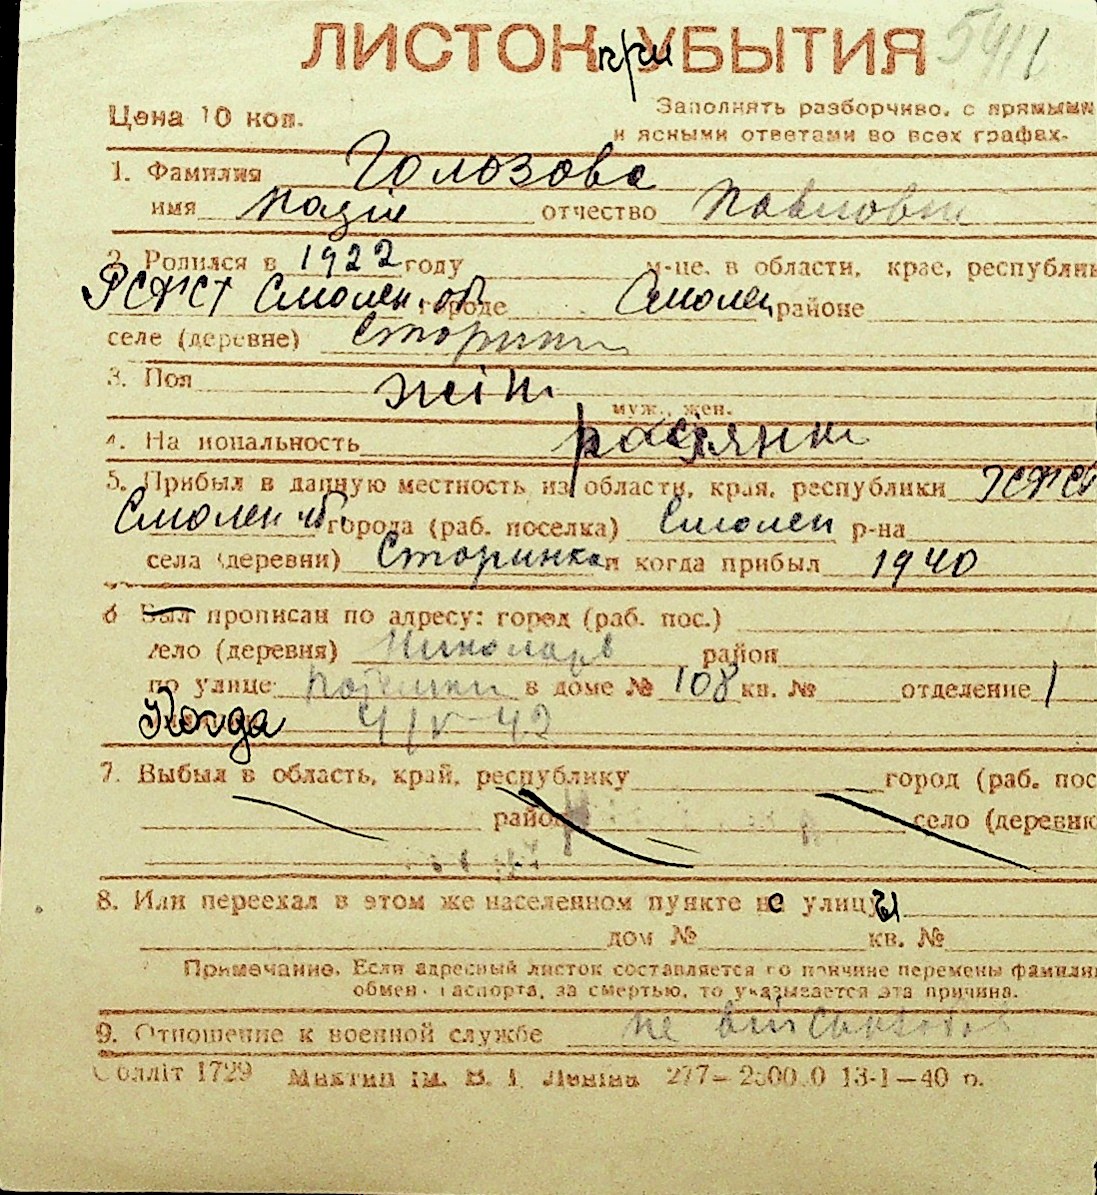 ЛИСТОК при УБЫТИЯ 5411
Цена 10 коп.
Заполнять разборчиво, с прямыми
и ясными ответами во всех графах.
1. Фамилия Голозова
имя Надія отчество Павловна
2. Родился в 1922 году м-це, в области, крае, республик
РСФСР Смолен. об. городе Смолен районе
селе (деревне)
3. Пол жін.
муж., жен.
4. На иональность росіянка
5. Прибыл в данную местность из области, края, республики
Смолен об. города (раб. поселка) Смолен р-на
села (деревни) Сторинка и когда прибыл 1940
6 Был прописан по адресу: город (раб. пос.)
село (деревня) Миколаїв район
по улице в доме № 108 кв. № отделение 1
Когда 4/IV-42
7. Выбыл в область, край, республику город (раб. пос
район село (деревню
8. Или переехал в этом же населенном пункте с улицы
дом № кв. №
Примечание. Если адресный листок составляется по причине перемены фамилии
обмен паспорта, за смертью, то указывается эта причина.
9. Отношение к военной службе не
Облліт 1729 Миктип ім. В. І. Леніна 277— 13-1—40 р.